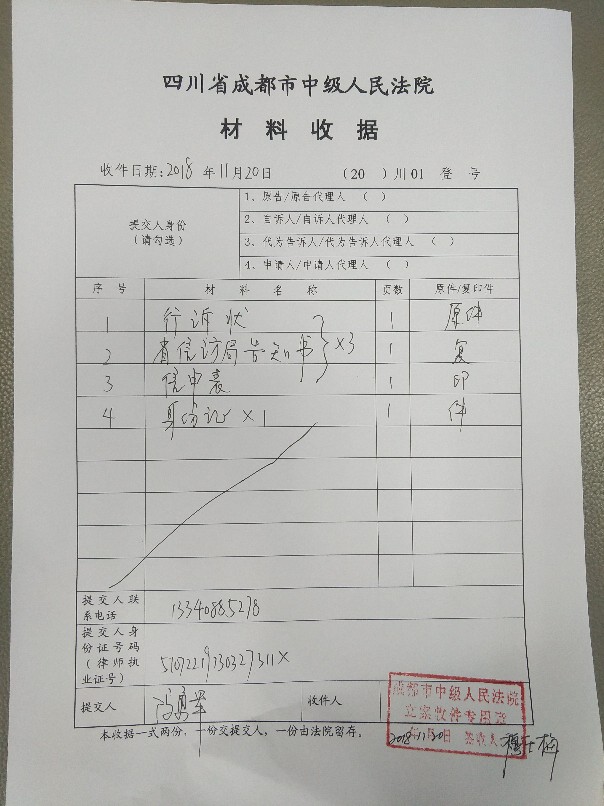 四川省成都市中级人民法院
材 料 收 据
收件日期:2018 年11月20日 (20 ) 川 01 登 号
提交人身份
(请勾选)
1、原告/原告代理人 ( )
2、自诉人/自诉人代理人 ( )
3、代为告诉人/代为告诉人代理人 ( )
4、申请人/申请人代理人 ( )
序 号 材 料 名 称 页数 原件/复印件
1 行诉状 1 原件
2 省信访局告知书 ×3 1 复
3 信申表 1 印
4 身份证 ×1 1 件
提交人联系电话 13340885278
提交人身份证号码(律师执业证号)
提交人 收件人
成都市中级人民法院
立案收件专用章
2018年11月20日 签收人
本收据一式两份,一份交提交人,一份由法院留存。